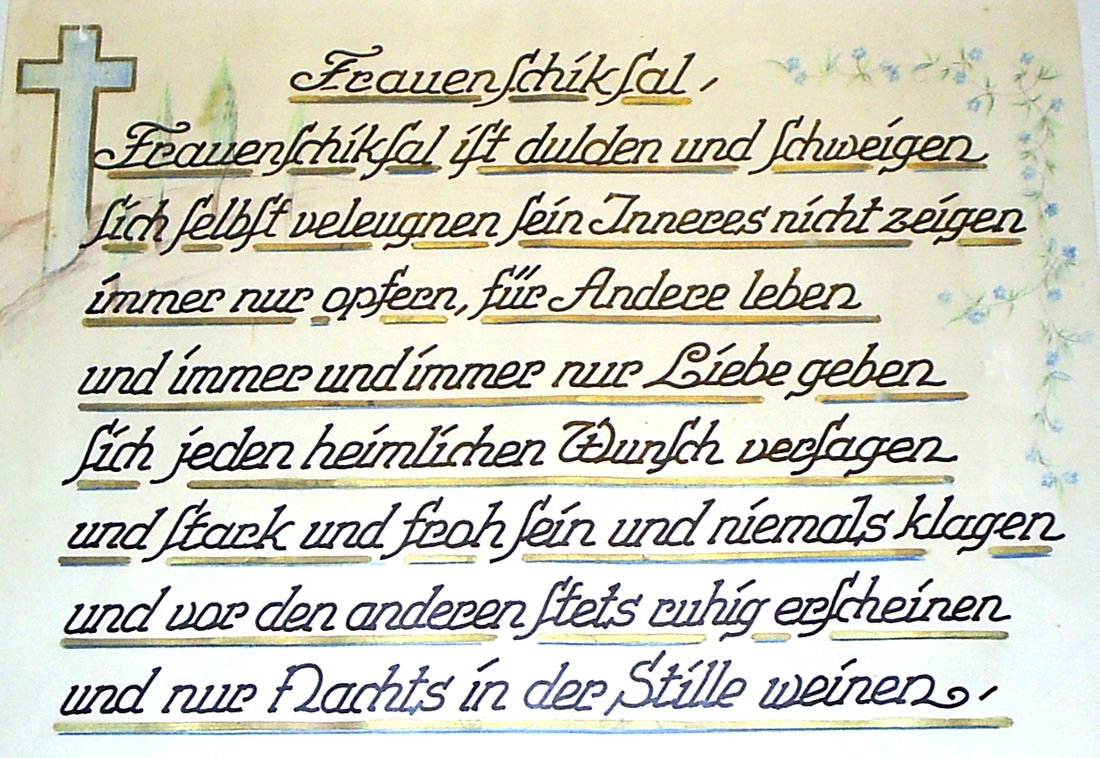 Frauenſchikſal,
Frauenſchikſal iſt dulden und ſchweigen
ſich ſelbſt veleugnen ſein Inneres nicht zeigen
immer nur opfern, für Andere leben
und immer und immer nur Liebe geben
ſich jeden heimlichen Wunſch verſagen
und ſtark und froh ſein und niemals klagen
und vor den anderen ſtets ruhig erſcheinen
und nur Nachts in der Stille weinen,